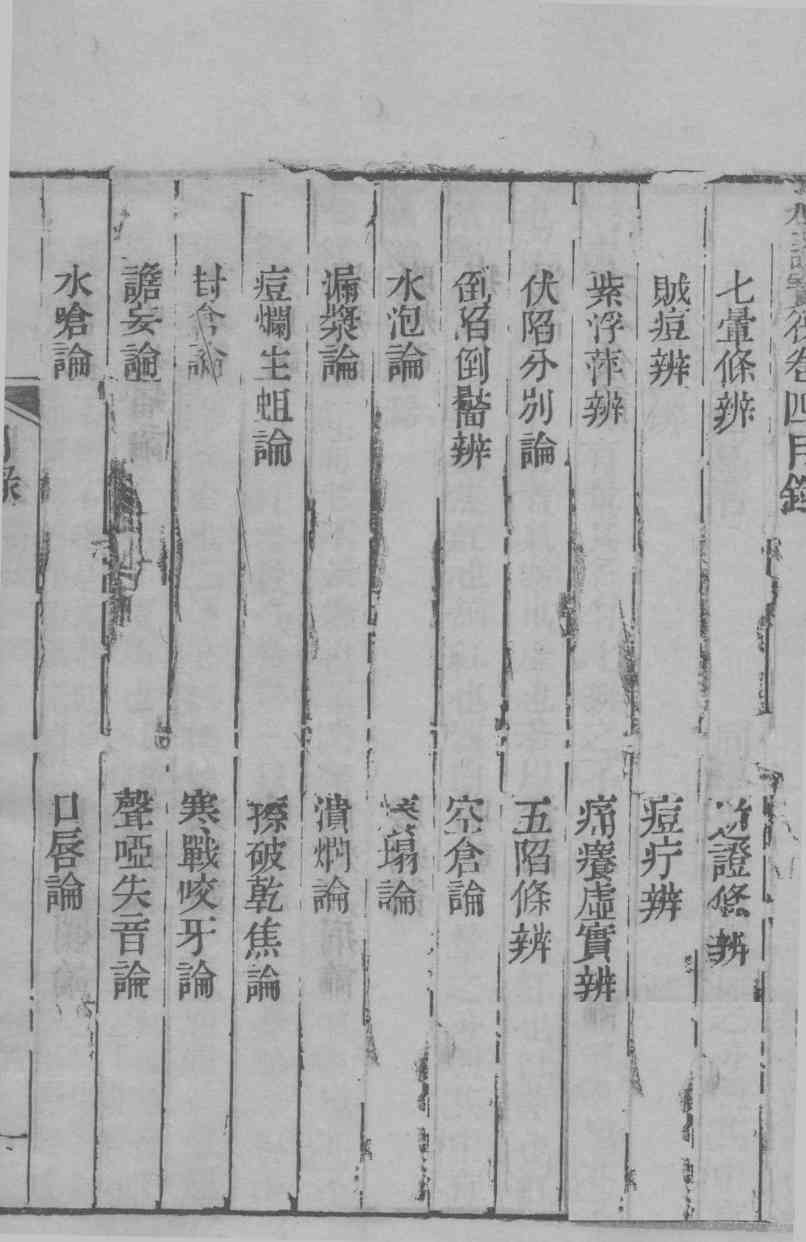 後卷四目錄
七暈條辨　證條辨
賊痘辨　痘疔辨
紫浮萍辨　痛癢虛實辨
伏陷分別論　五陷條辨
倒陷倒靨辨　空倉論
水泡論　塌論
漏漿論　潰爛論
痘爛生蛆論　擦破乾焦論
封論　寒戰咬牙論
譫妄論　聲啞失音論
水嗆論　口唇論
目錄
一